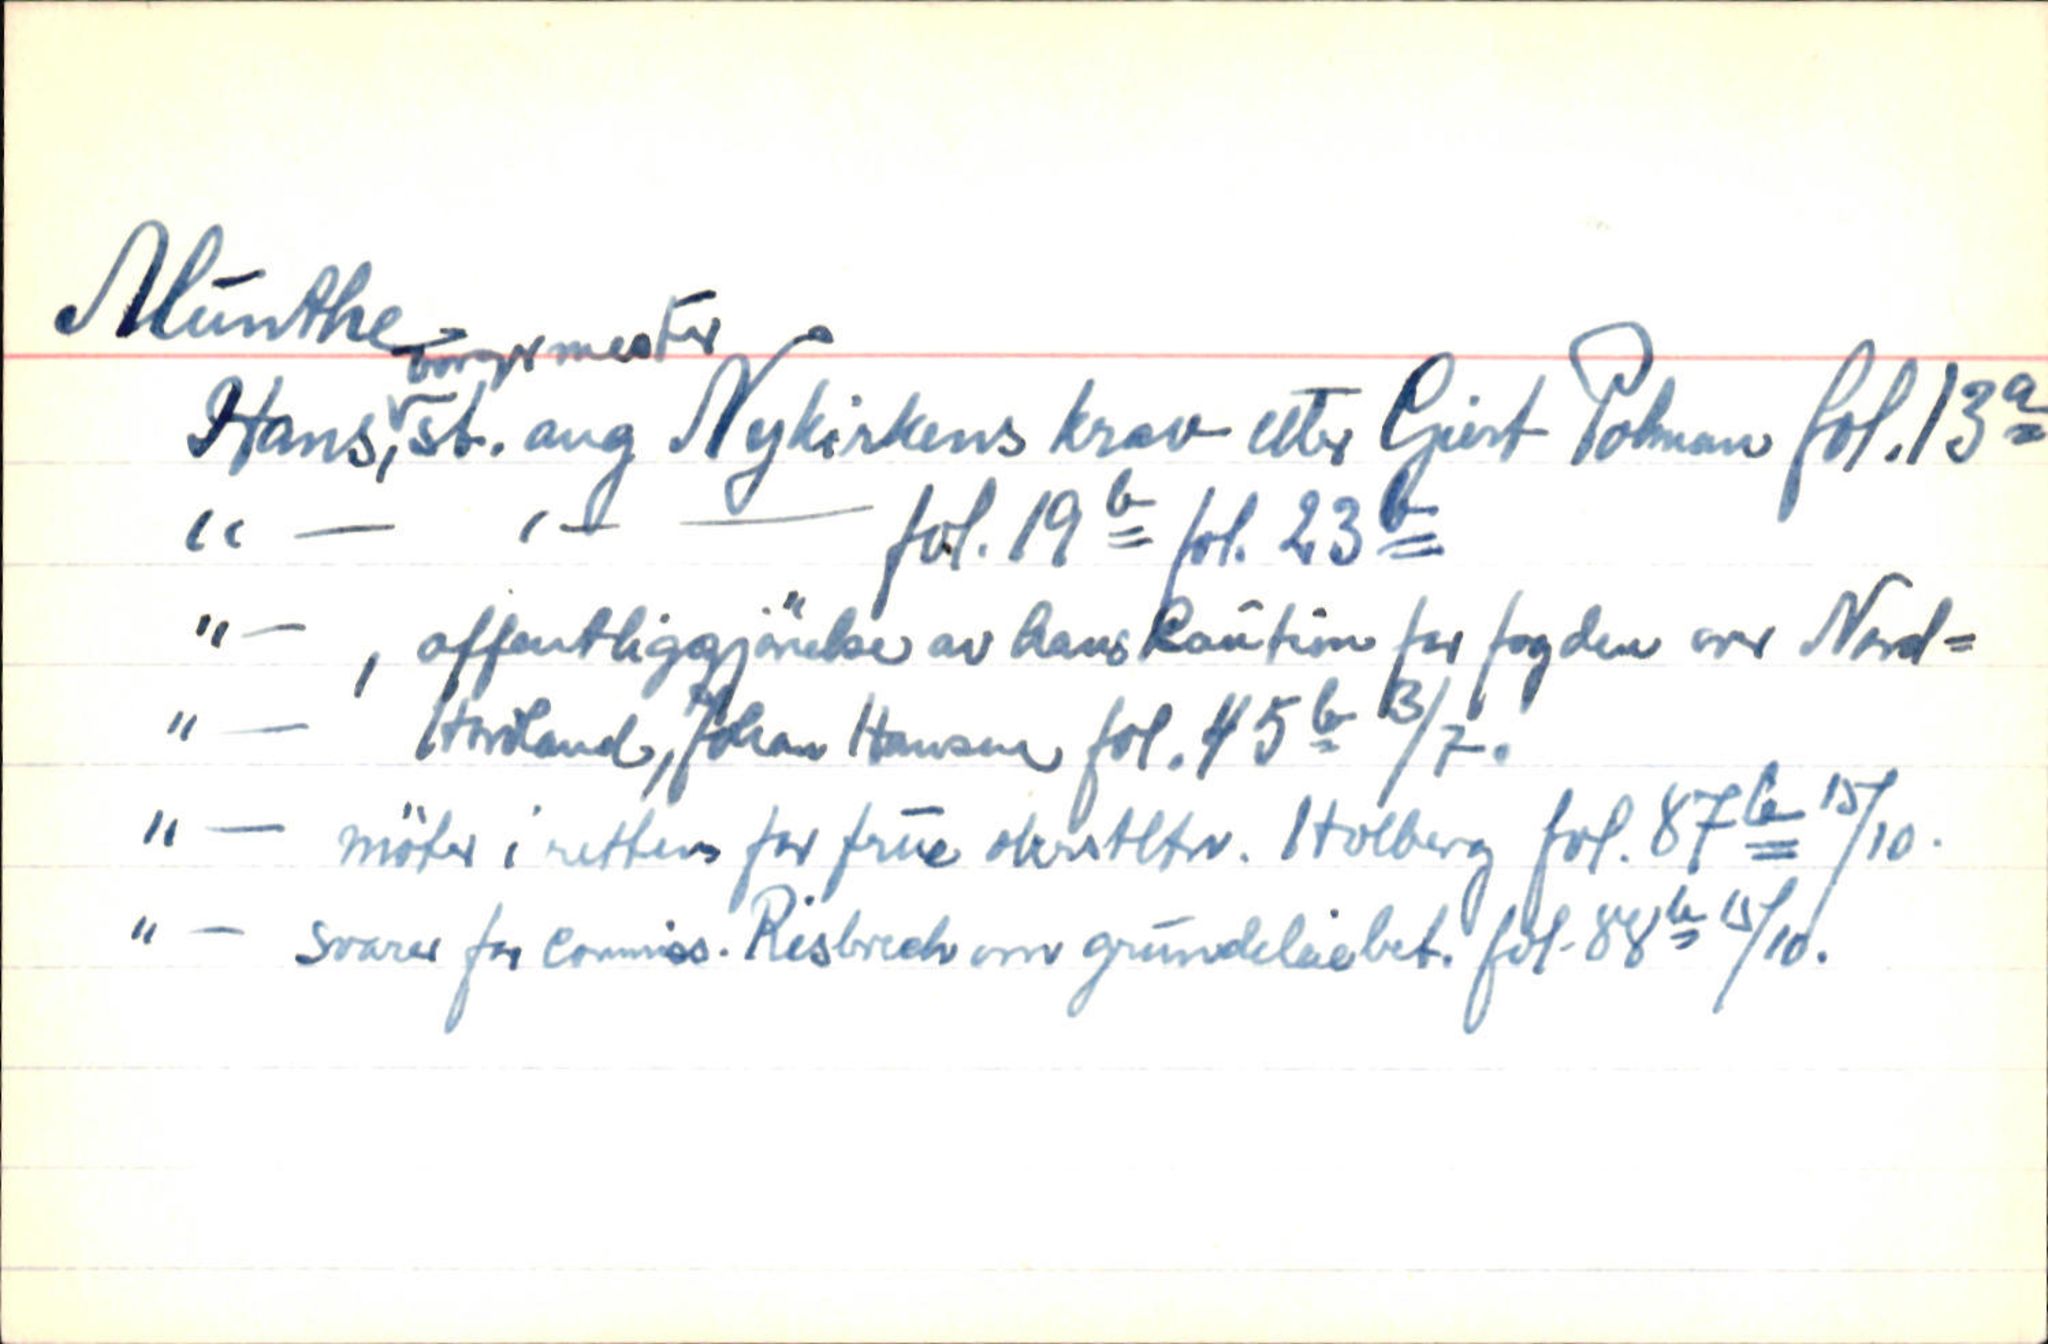 Munthe
borgermester
Hans, st. ang Nykirkens krav etter Giert Polman fol. 13a
" — " — — fol. 19b fol. 23b
" — , offentliggjörelse av hans Caution for fogden over Nord=
" — Hordland, Johan Hansen fol. 45b 13/7.
" — möter i retten for frue oberstltn. Holberg fol. 87b 15/10.
" — svarer for Commiss. Risbrech om grundeleiebet. fol. 88b 15/10.